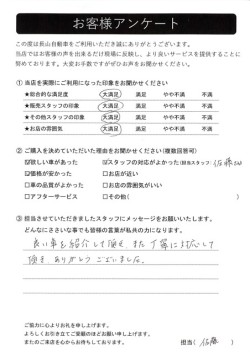 お客様アンケート
この度は長山自動車をご利用いただき誠にありがとうございます。
当店ではお客様の声を出来るだけ現場に反映し、より良いサービスを提供することに
努めております。大変お手数ですがぜひお声をお聞かせください。
①当店を実際にご利用になった印象をお聞かせください
★総合的な満足度 大満足 満足 やや不満 不満
★販売スタッフの印象 大満足 満足 やや不満 不満
★その他スタッフの印象 大満足 満足 やや不満 不満
★お店の雰囲気 大満足 満足 やや不満 不満
②ご購入を決めていただいた理由をお聞かせください(複数回答可)
☑欲しい車があった ☑スタッフの対応がよかった(担当スタッフ: 佐藤さん
☑価格が安かった □お店が近い
□車の品質がよかった □お店の雰囲気がいい
□アフターサービス □その他(
③担当させていただきましたスタッフにメッセージをお願いいたします。
どんなにささいな事でも皆様の言葉が私共の力になります。
良い車を紹介して頂き、また丁寧に対応して
頂き ありがとうございました。
ご協力に心よりお礼を申し上げます。
よろしくお引き立てご愛顧のほどお願い申し上げます。
またのご来店を心からお待ちしております。
担当( 佐藤 )